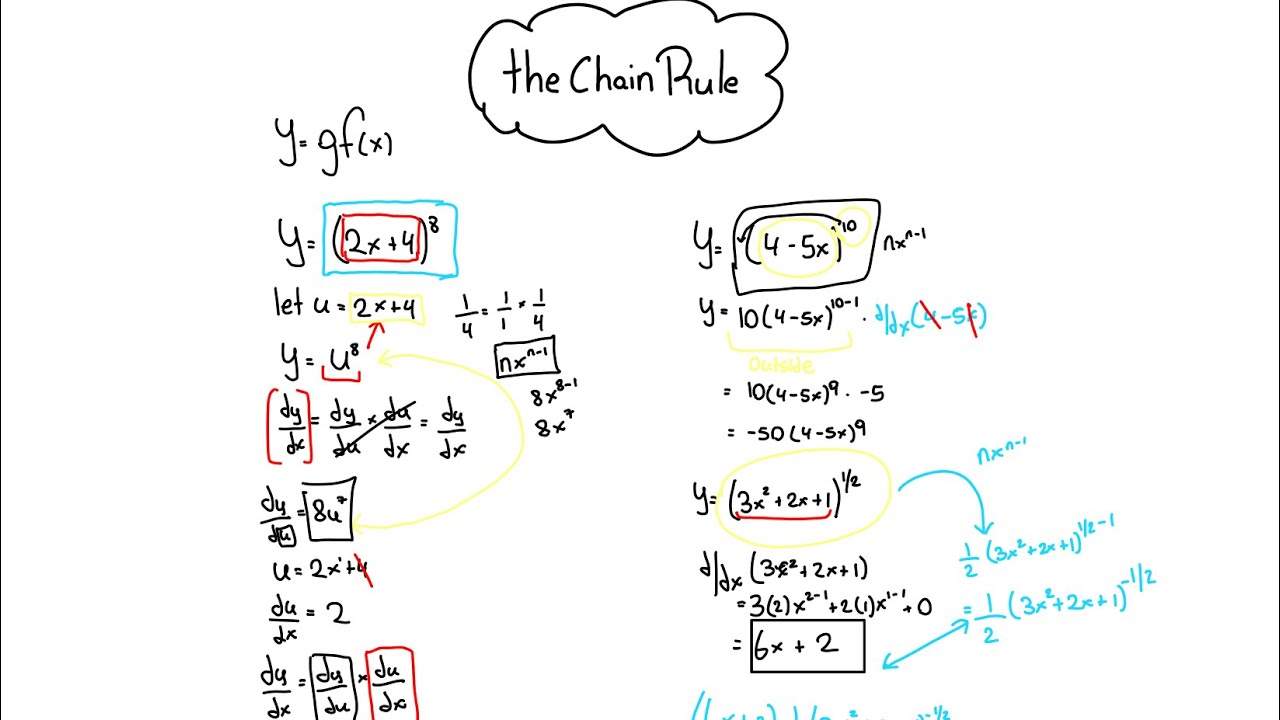 the Chain Rule
y = gf(x)
y = (2x+4)^8
let u = 2x+4
1/4 = 1/1 × 1/4
y = u^8
nx^{n-1}
8x^{8-1}
8x^7
dy/dx = dy/du × du/dx = dy/dx
dy/du = 8u^7
u = 2x^1+4
du/dx = 2
dy/dx = dy/du × du/dx
y = (4-5x)^10
nx^{n-1}
y = 10(4-5x)^{10-1} · d/dx(4-5x)
Outside
= 10(4-5x)^9 · -5
= -50(4-5x)^9
y = (3x²+2x+1)^{1/2}
nx^{n-1}
1/2 (3x²+2x+1)^{1/2-1}
= 1/2 (3x²+2x+1)^{-1/2}
d/dx (3x²+2x+1)
= 3(2)x^{2-1}+2(1)x^{1-1}+0
= 6x + 2